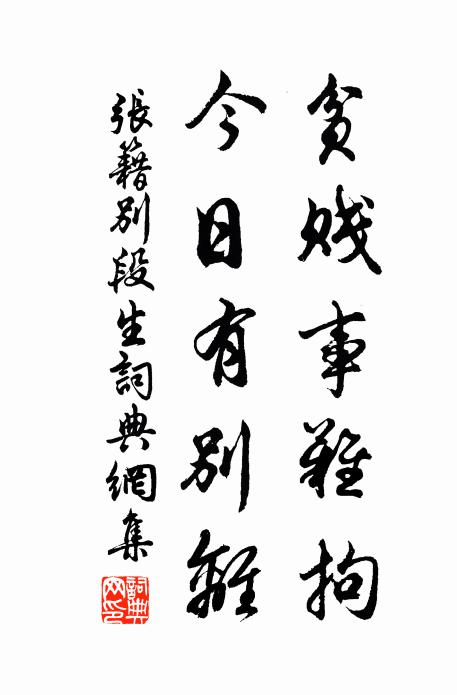 貧賤事難拘
今日有別離
張籍別段生詞典網集
詞典网印